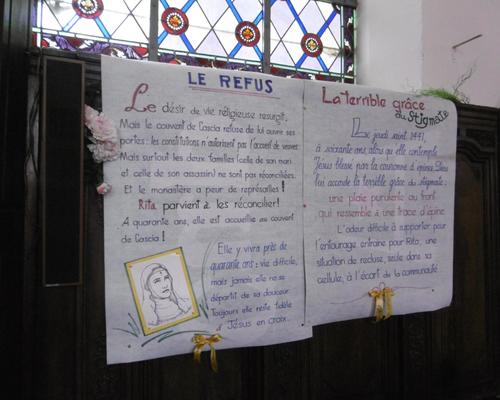 LE REFUS
Le désir de vie religieuse resurgit,
Mais le couvent de Cascia refuse de lui ouvrir ses
portes : les constitutions n'autorisent pas l'accueil de veuves
Mais surtout les deux familles (celle de son mari
et celle de son assassin) ne sont pas réconciliées.
Et le monastère a peur de représailles !
Rita parvient à les réconcilier !
A quarante ans, elle est accueillie au couvent
de Cascia !
Elle y vivra près de
quarante ans : vie difficile,
mais jamais elle ne se
départit de sa douceur
Toujours elle reste fidèle
à Jésus en croix.
La terrible grâce
du Stigmate
Le jeudi saint 1441,
à soixante ans alors qu'elle contemple
Jésus blessé par la couronne d'épines
lui accorde la terrible grâce du stigmate :
une plaie purulente au front
qui ressemble à une trace d'épine
L'odeur difficile à supporter pour
l'entourage entraine pour Rita, une
situation de recluse, seule dans sa
cellule, à l'écart de la communauté